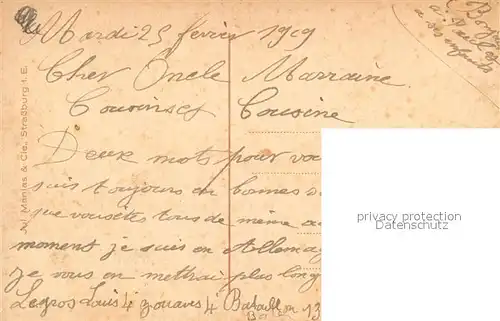 Mardi 25 février 1919
Cher Oncle Marraine
Cousins et Cousine
Deux mots pour vou
suis toujours en bonnes s
que vous êtes tous de même a
moment je suis en Allemag
je vous en mettrai plus long
Legros Louis 4 zouaves 4 Bataillon 13
Bonjour
a ses enfants
Jul. Manias & Cie., Straßburg i. E.
privacy protection
Datenschutz